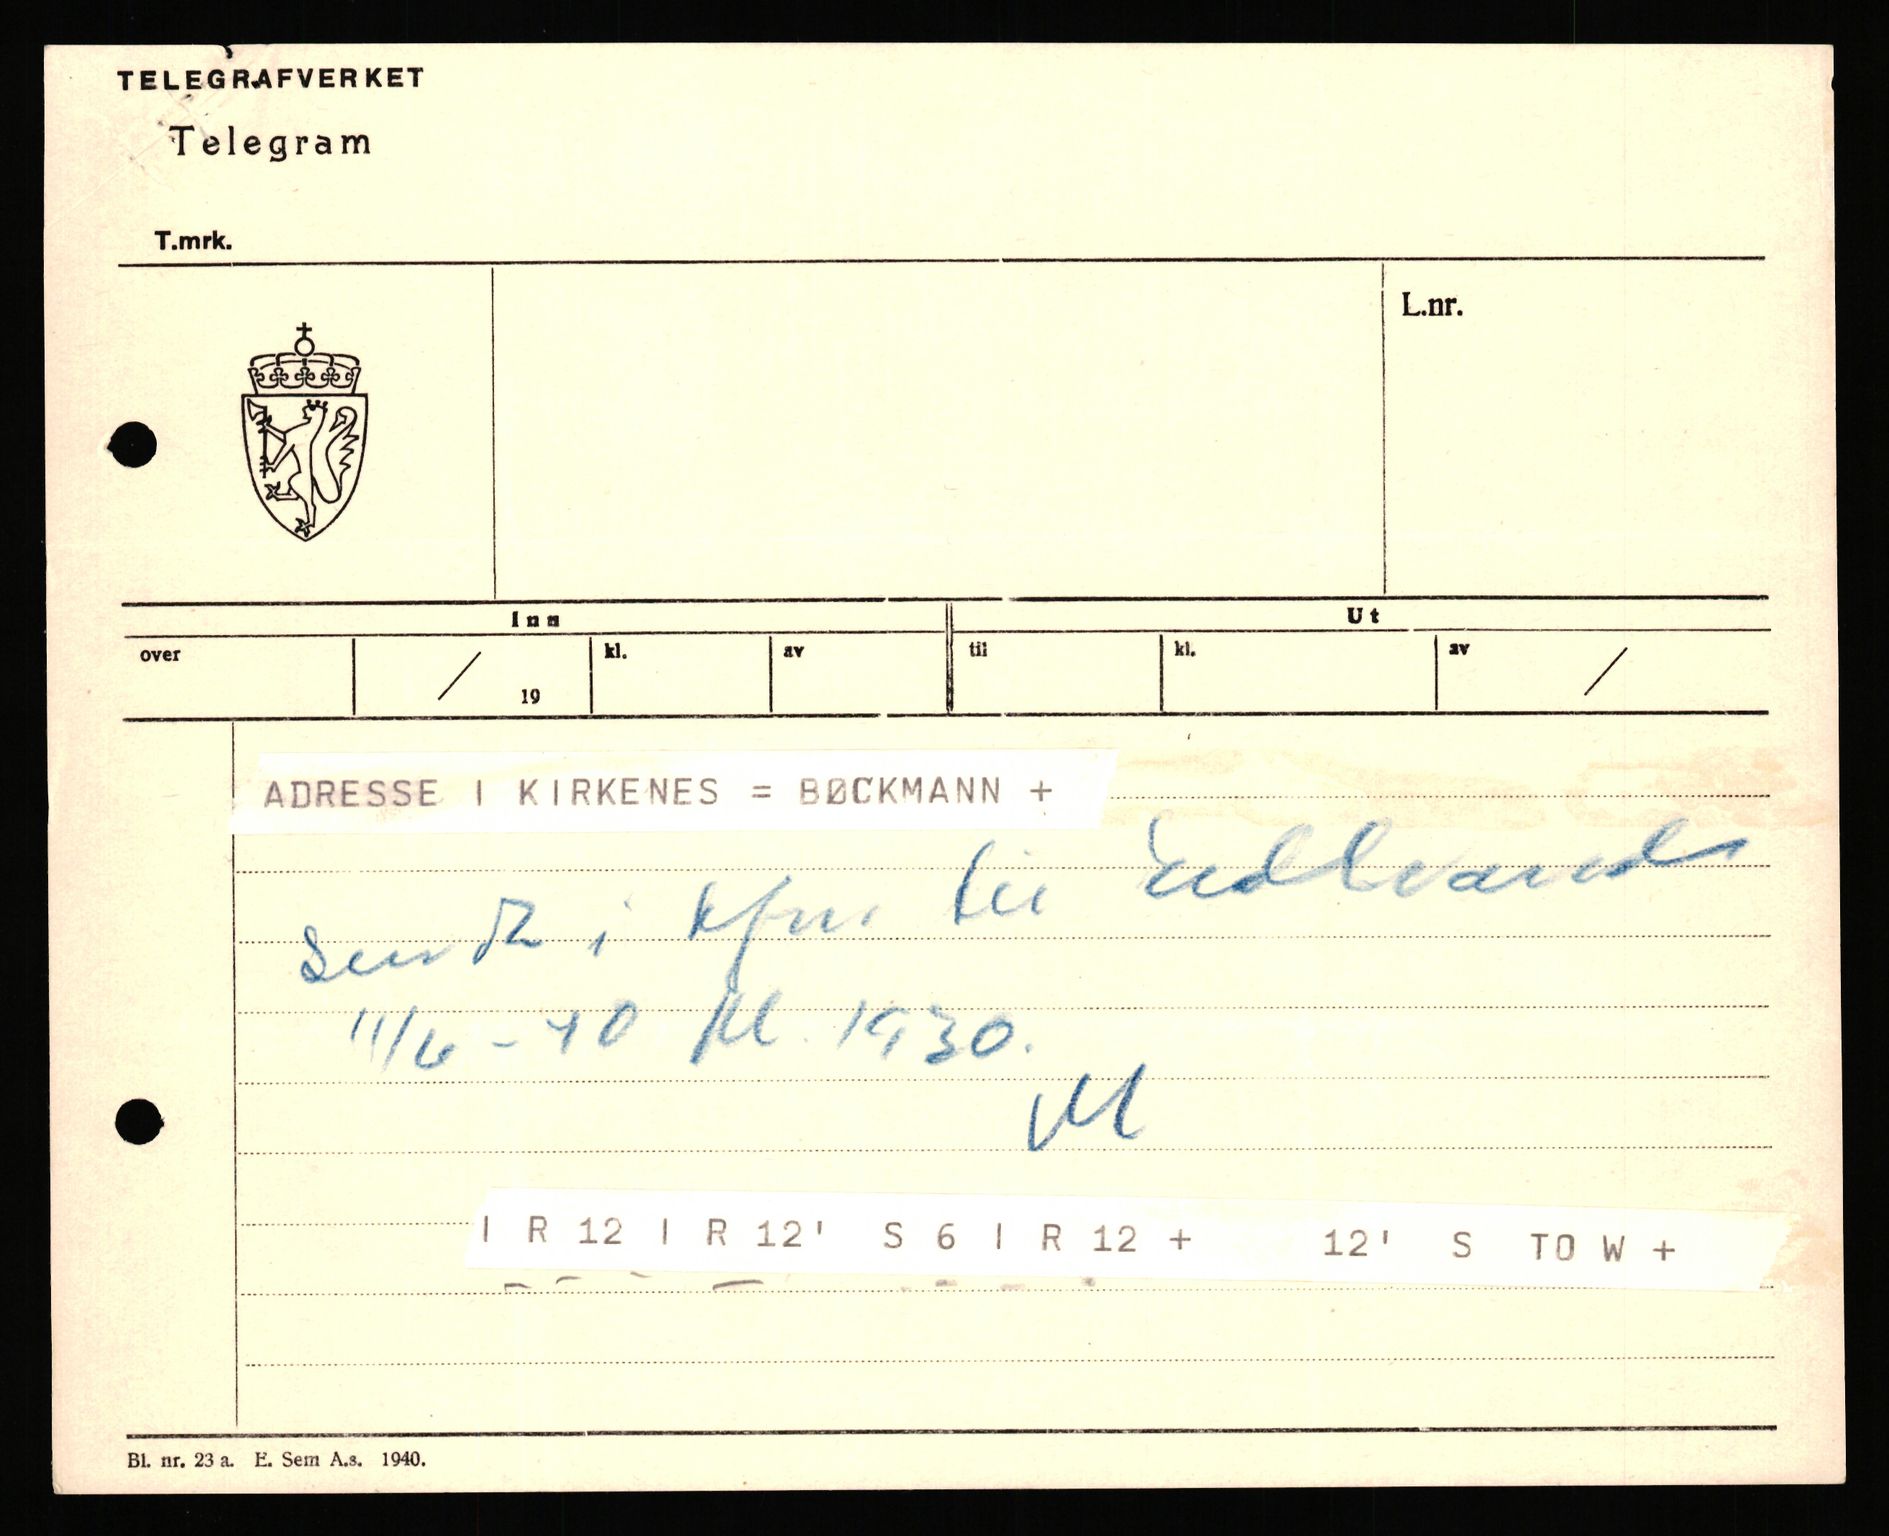 TELEGRAFVERKET
Telegram
T.mrk.
L.nr.
Inn
Ut
over
19
kl.
av
til
kl.
av
ADRESSE I KIRKENES = BØCKMANN +
Sendt i til
11/6 - 40 kl. 1930.
I R 12 I R 12' S 6 I R 12 + 12' S TO W +
Bl. nr. 23 a. E. Sem A.s. 1940.